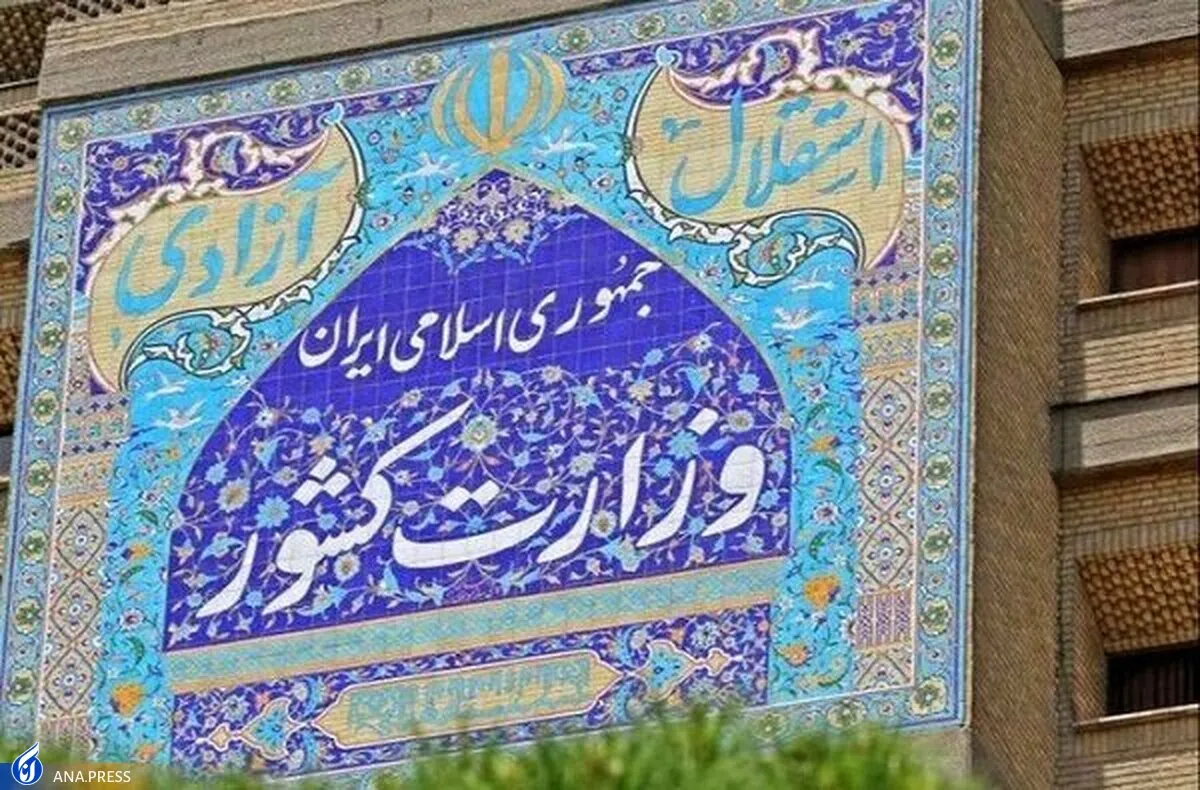 استقلال
آزادی
جمهوری اسلامی ایران
وزارت کشور
ANA.PRESS